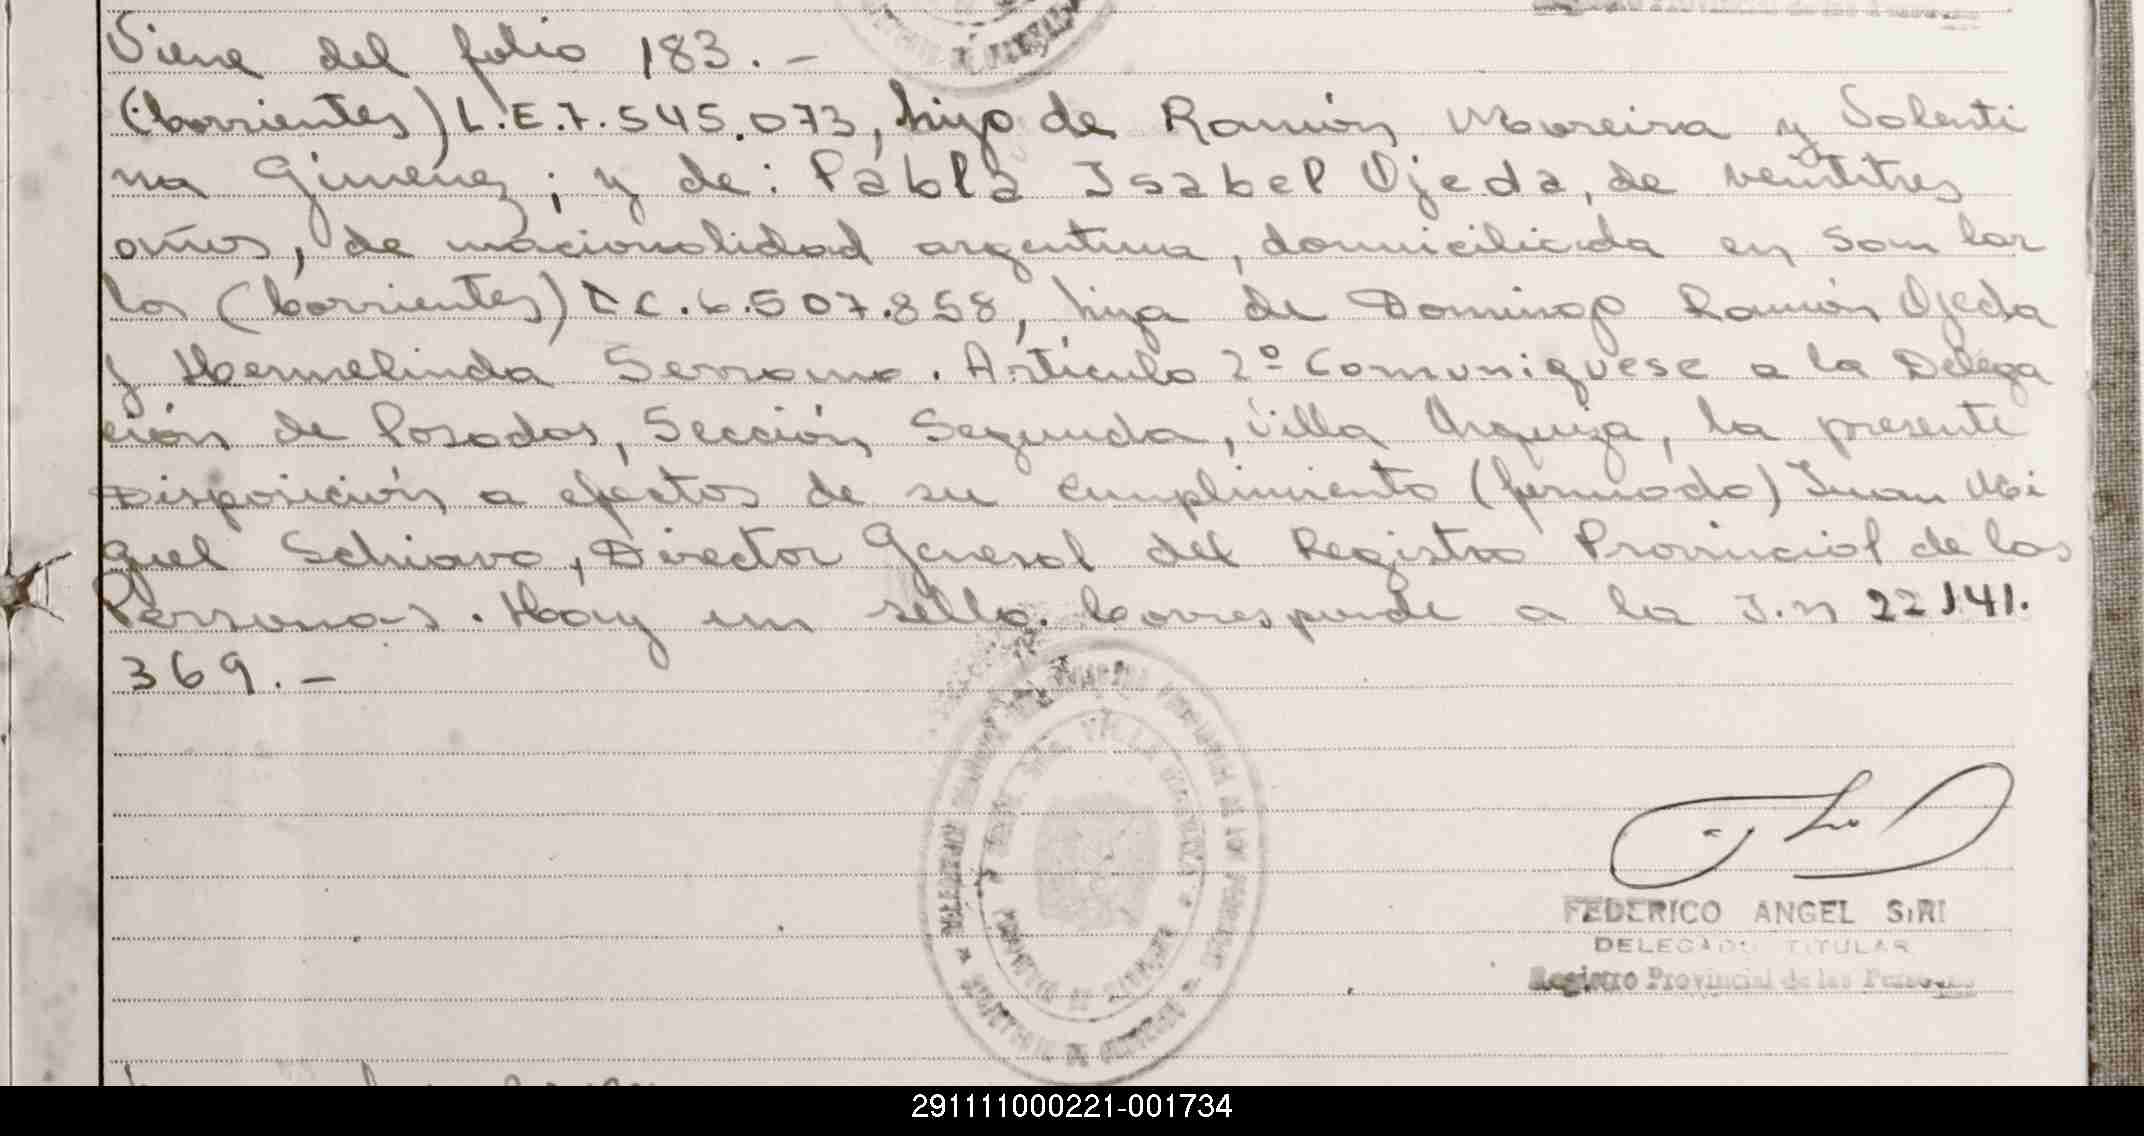 Viene del folio 183.-
(Corrientes) L.E.7.545.073, hijo de Ramón Moreira y Valenti
na Gimenez; y de: Pabla Isabel Ojeda, de veintitres
años, de nacionalidad argentina, domiciliada en San Car
los (Corrientes) L C.6.507.858, hija de Domingo Ramón Ojeda
y Hermelinda Serrano. Artículo 2º Comuniquese a la Delega
ción de Posadas, Sección Segunda, Villa Urquiza, la presente
Disposición a efectos de su cumplimiento (firmado) Juan Mi
guel Schiavo, Director General del Registro Provincial de las
Personas. Hay un sello. Corresponde a la I.n 22141.
369.-
FEDERICO ANGEL SIRI
DELEGADO TITULAR
Registro Provincial de las Personas
291111000221-001734